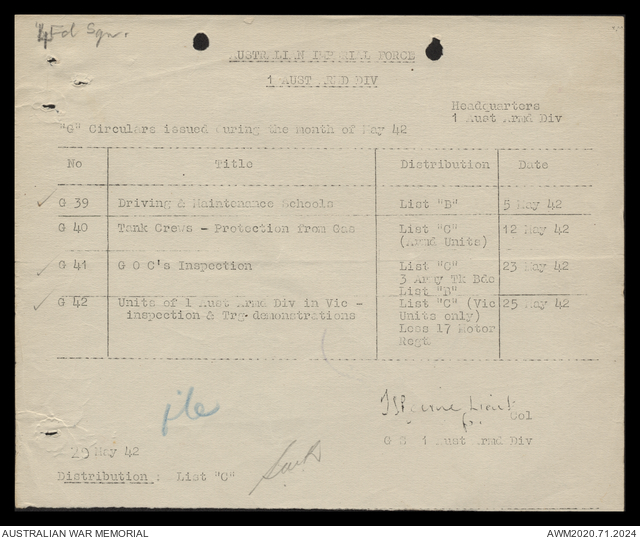 4 Fd Sqn.
AUSTRALIAN IMPERIAL FORCE
1 AUST ARMD DIV
Headquarters
1 Aust Armd Div
"G" Circulars issued during the month of May 42
No Title Distribution Date
G 39 Driving & Maintenance Schools List "B" 5 May 42
G 40 Tank Crews - Protection from Gas List "C" 12 May 42
(Armd Units)
G 41 G O C's Inspection List "C" 23 May 42
3 Army Tk Bde
List "B"
G 42 Units of 1 Aust Armd Div in Vic - List "C" (Vic 25 May 42
inspection & Trg. demonstrations Units only)
Less 17 Motor
Regt
file
Lieut
Col
G S 1 Aust Armd Div
29 May 42
Distribution : List "C"
AUSTRALIAN WAR MEMORIAL
AWM2020.71.2024